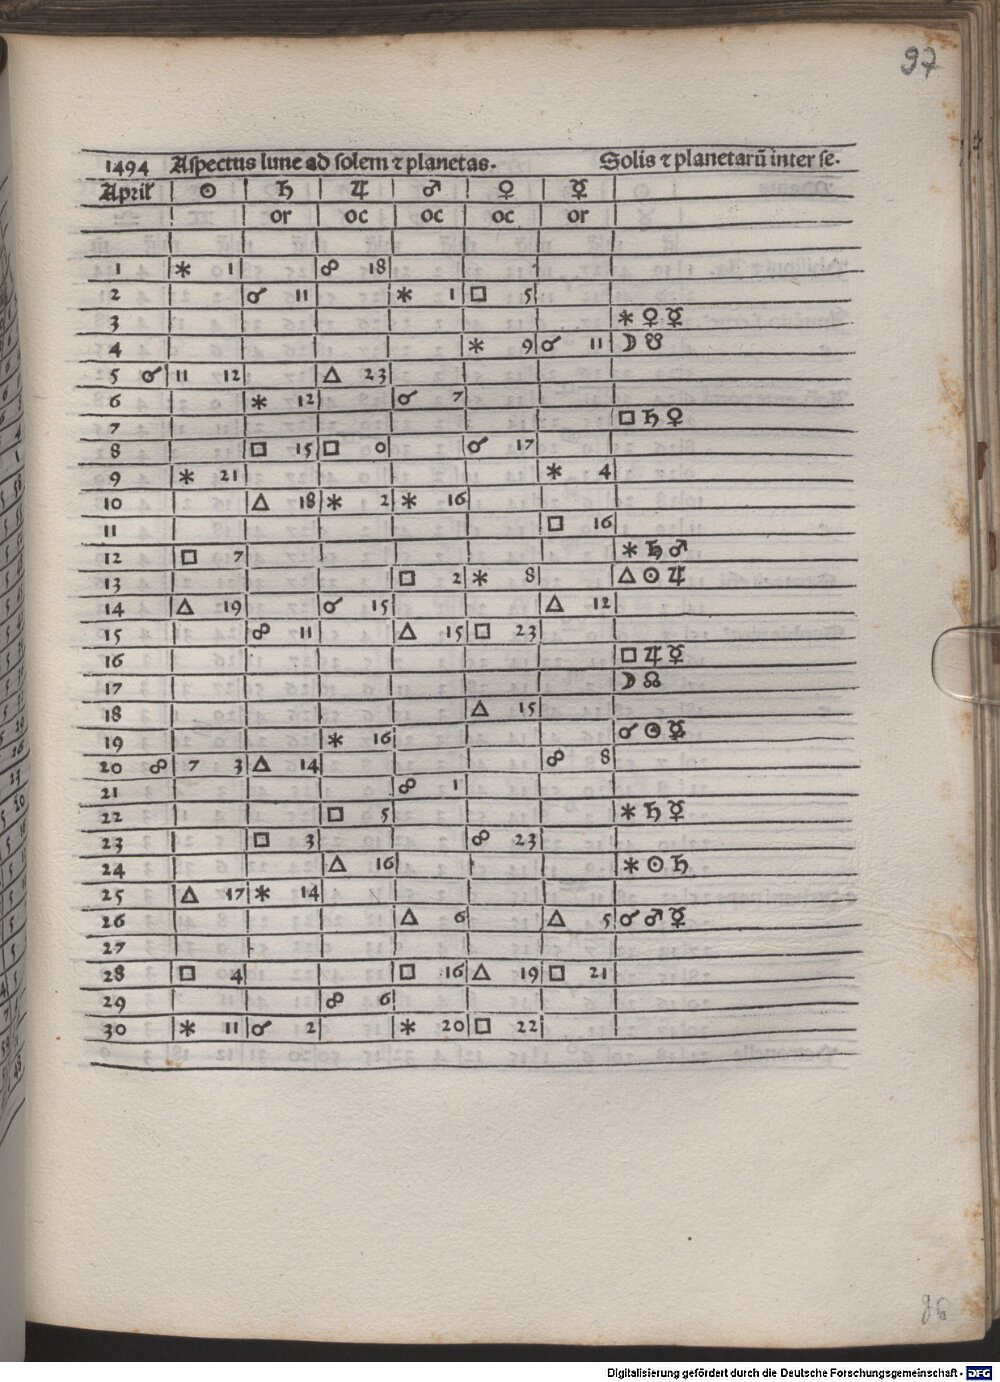 97
1494 Aſpectus lune ad ſolem ⁊ planetas. Solis ⁊ planetarū inter ſe.
April ☉ ♄ ♃ ♂ ♀ ☿
or oc oc oc or
1 ⚹ 1 ☍ 18
2 ☌ 11 ⚹ 1 □ 5
3 ⚹ ♀ ☿
4 ⚹ 9 ☌ 11 ☽ ☋
5 ☌ 11 12 △ 23
6 ⚹ 12 ☌ 7
7 □ ♄ ♀
8 □ 15 □ 0 ☌ 17
9 ⚹ 21 ⚹ 4
10 △ 18 ⚹ 2 ⚹ 16
11 □ 16
12 □ 7 ⚹ ♄ ♂
13 □ 2 ⚹ 8 △ ☉ ♃
14 △ 19 ☌ 15 △ 12
15 ☍ 11 △ 15 □ 23
16 □ ♃ ☿
17 ☽ ☊
18 △ 15
19 ⚹ 16 ☌ ☉ ☿
20 ☍ 7 3 △ 14 ☍ 8
21 ☍ 1
22 □ 5 ⚹ ♄ ☿
23 □ 3 ☍ 23
24 △ 16 ⚹ ☉ ♄
25 △ 17 ⚹ 14
26 △ 6 △ 5 ☌ ♂ ☿
27
28 □ 4 □ 16 △ 19 □ 21
29 ☍ 6
30 ⚹ 11 ☌ 2 ⚹ 20 □ 22
Digitalisierung gefördert durch die Deutsche Forschungsgemeinschaft - DFG